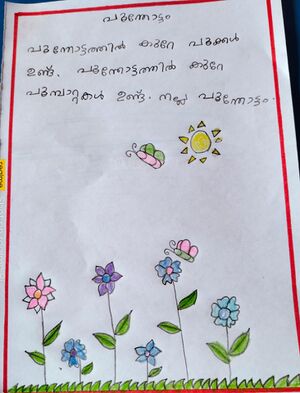 പൂന്തോട്ടം
പൂന്തോട്ടത്തിൽ കുറേ പൂക്കൾ
ഉണ്ട്. പൂന്തോട്ടത്തിൽ കുറേ
പൂമ്പാറ്റകൾ ഉണ്ട്. നല്ല പൂന്തോട്ടം.